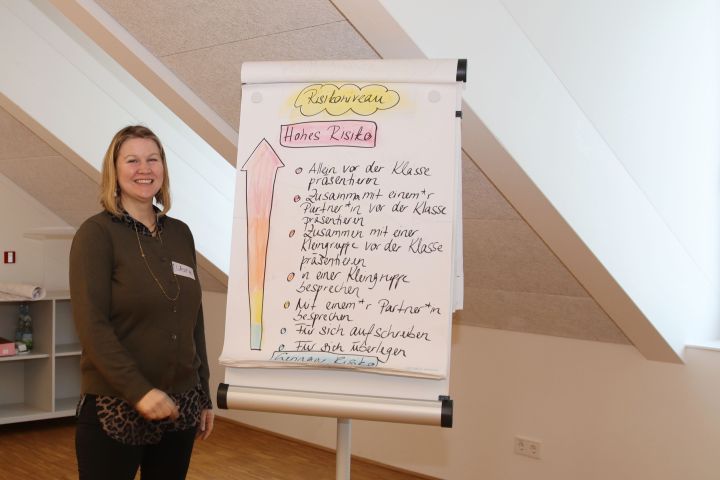 Risikoniveau
Hohes Risiko
Allein vor der Klasse
präsentieren
Zusamma mit einem*r
Partner*in vor der Klasse
präsentieren
Zusammen mit einer
Kleingruppe vor der Klasse
präsentieren
in einer Kleingruppe
besprechen
Mit einem*r Partner*in
besprechen
Für sich aufschreiben
Für sich überlegen
Geringes Risiko